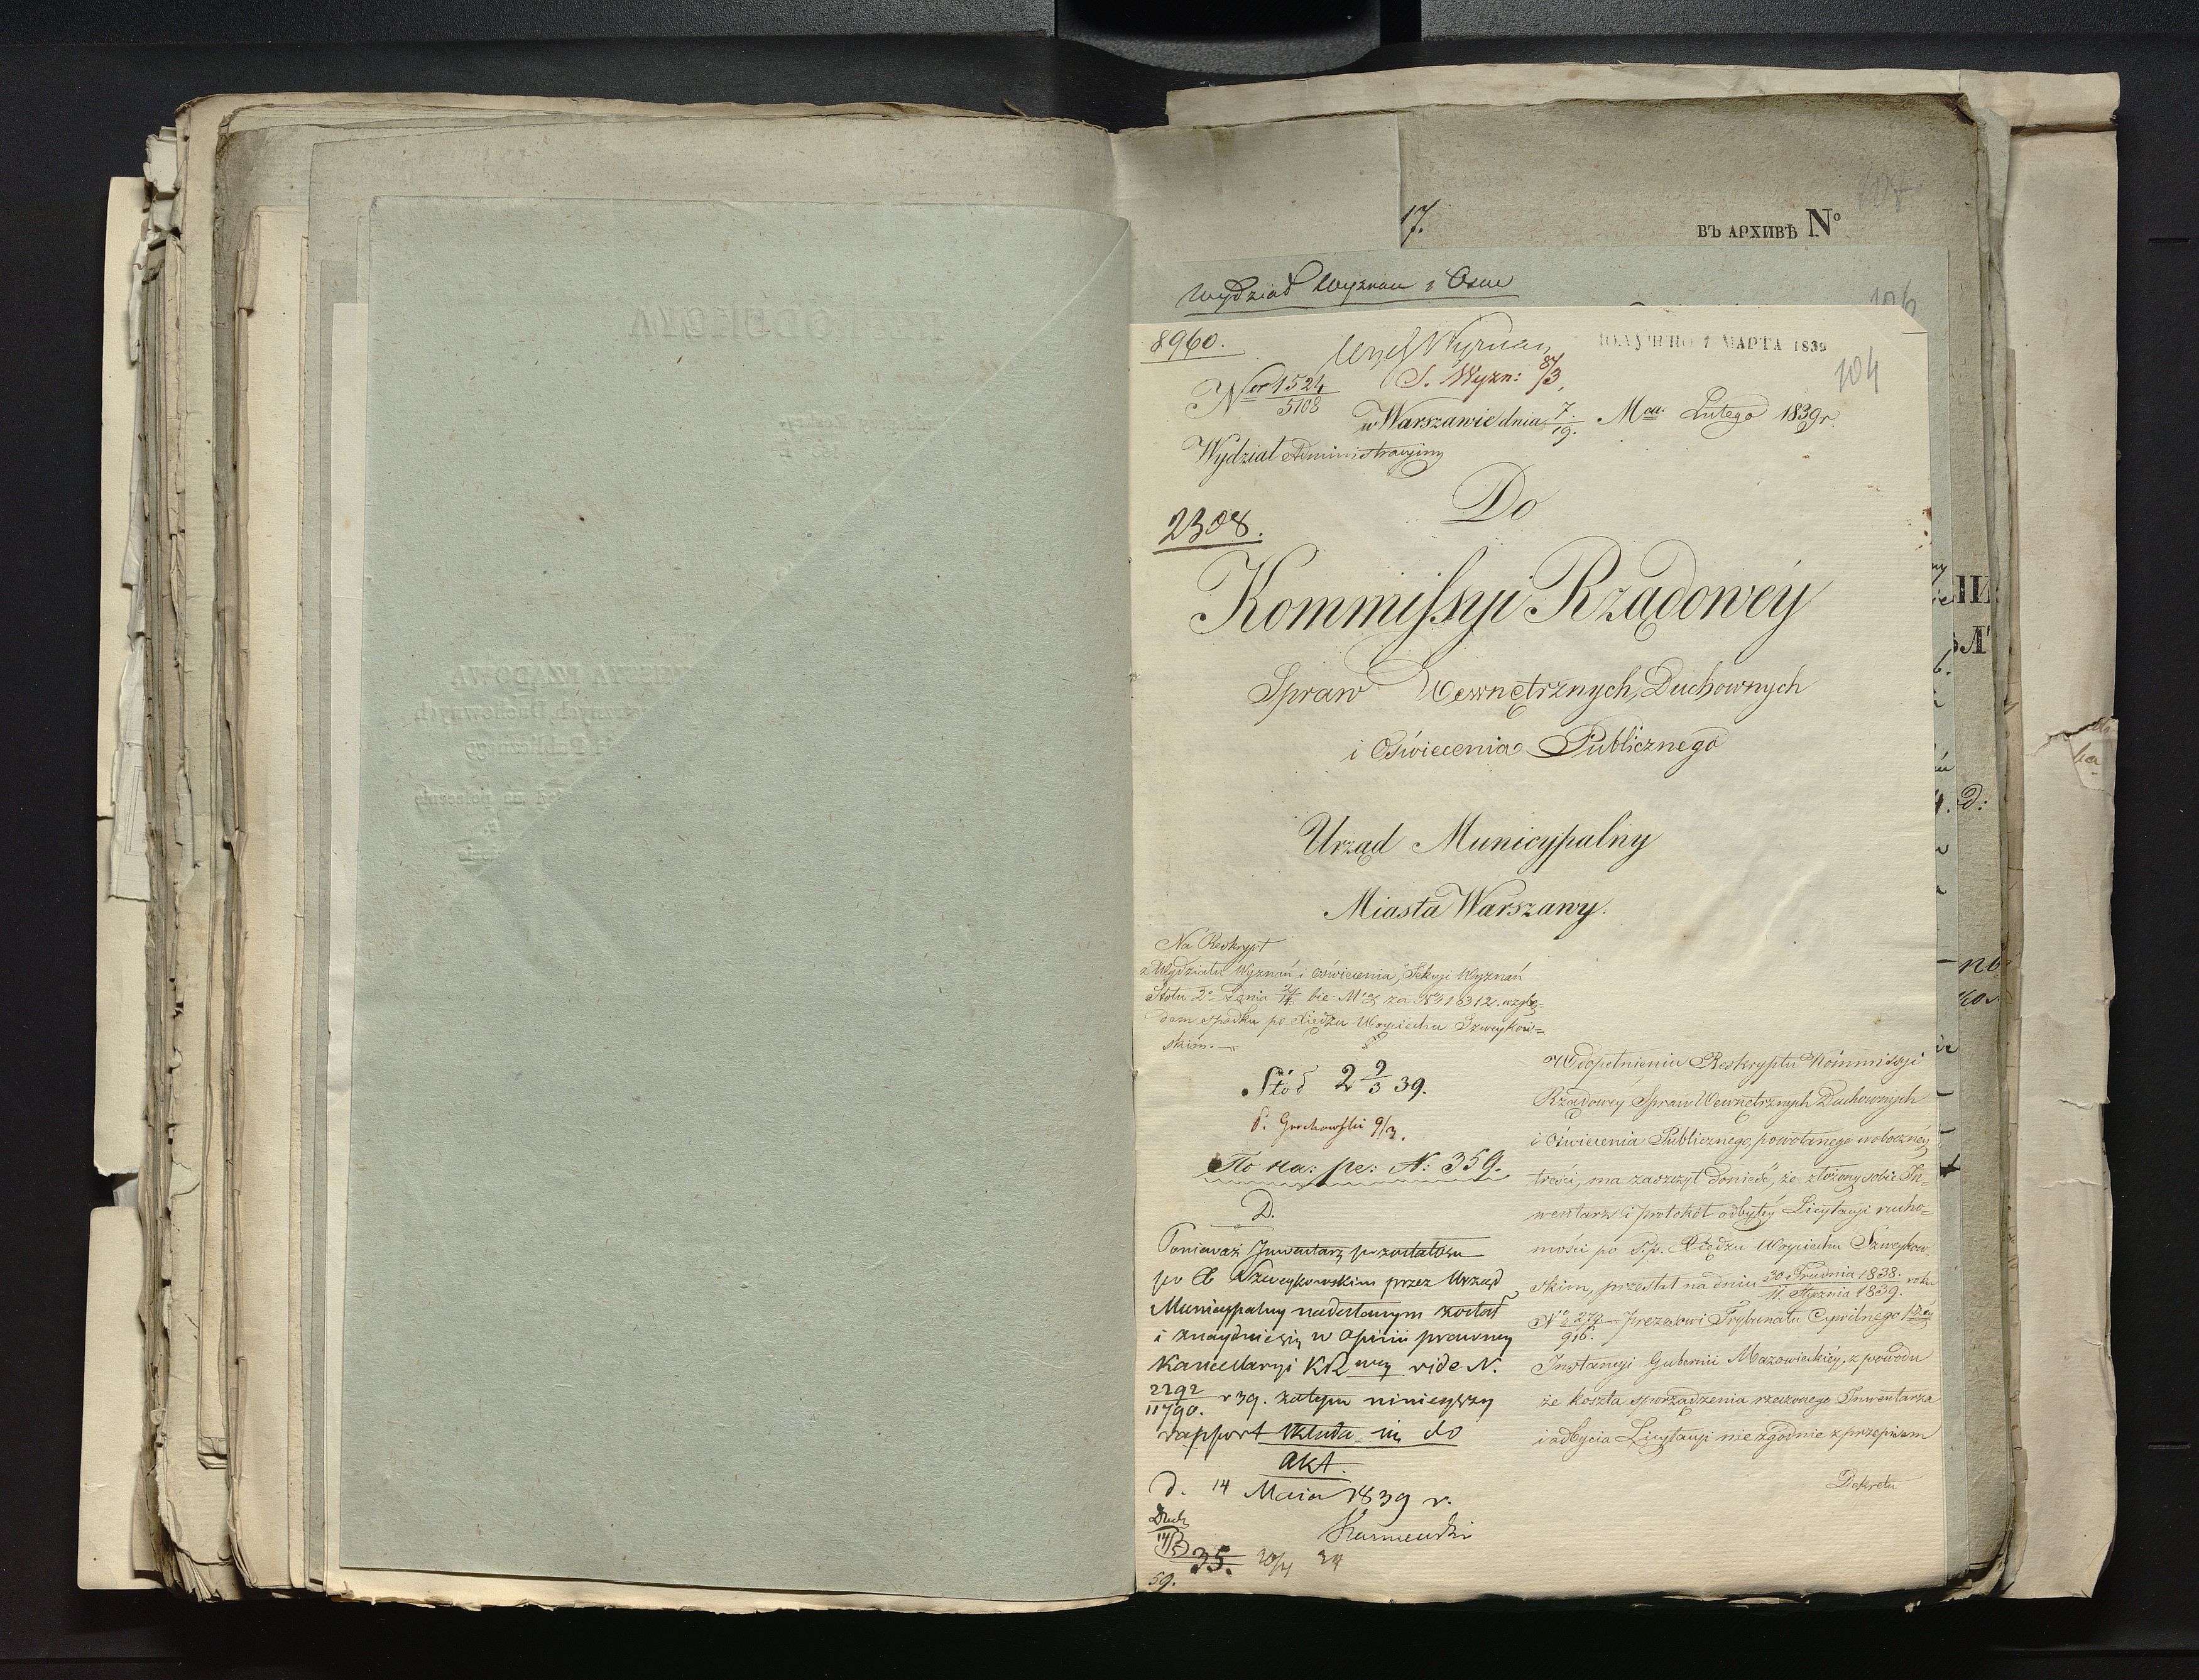 17.
ВЪ АРХИВѢ №
107
Wydział Wyznań i Oświe
106
8960.
ПОЛУЧЕНО 7 МАРТА 1839
104
S. Wyzn: 8/3.
Nor 1524/5108
w Warszawie dnia 7/19. Mca. Lutego 1839 r.
Wydział Administracyjny
Do
2308.
Kommissyi Rządowéy
Spraw Wewnętrznych, Duchownych
i Oświecenia Publicznego
Urząd Municypalny
Miasta Warszawy.
Na Reskrypt
z Wydziału Wyznań i Oświecenia, Sekcyi Wyznań
Stołu 2o z dnia bie: Mca za No 1312. wzglę=
dem spadku po Xiędzu Woyciechu Szweykow=
skim.
Stół 2 9/3 39.
P. Grochowski 9/3.
По на: ре: N: 359.
D.
Ponieważ Inwentarz pozostałości
po X Szweykowskim przez Urząd
Municypalny nadesłanym został
i znayduie się w opinii prawney
Kancellaryi KRney vide N.
2292/11790. r 39. zatym ninieyszy
rapport składa się do
Akt.
d. 14 Maia 1839 r.
35.
59.
W dopełnieniu Reskryptu Kommissyi
Rządowéy Spraw Wewnętrznych Duchownych
i Oświecenia Publicznego, powołanego w obocznéy
treści, ma zaszczyt donieść, że złożony sobie In=
wentarz i protokół odbytéy Licytacyi rucho=
mości po ś.p. Xiędzu Woyciechu Szweykow=
skim, przesłał na dniu 30 Grudnia 1838./11. Stycznia 1839. roku
No 279/916. Prezesowi Trybunału Cywilnego 1széy
Instancyi Gubernii Mazowieckiéy, z powodu
że koszta sporządzenia rzeczonego Inwentarza
i odbycia Licytacyi nie zgodnie z przepisem
Dekretu